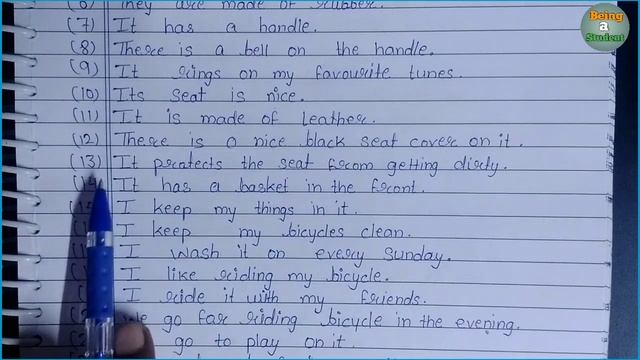 (6) They are made of rubber.
(7) It has a handle.
(8) There is a bell on the handle.
(9) It rings on my favourite tunes.
(10) Its seat is nice.
(11) It is made of leather.
(12) There is a nice black seat cover on it.
(13) It protects the seat from getting dirty.
(14) It has a basket in the front.
I keep my things in it.
I keep my bicycles clean.
I wash it on every Sunday.
I like riding my bicycle.
I ride it with my friends.
We go for riding bicycle in the evening.
go to play on it.
Being
a
Student